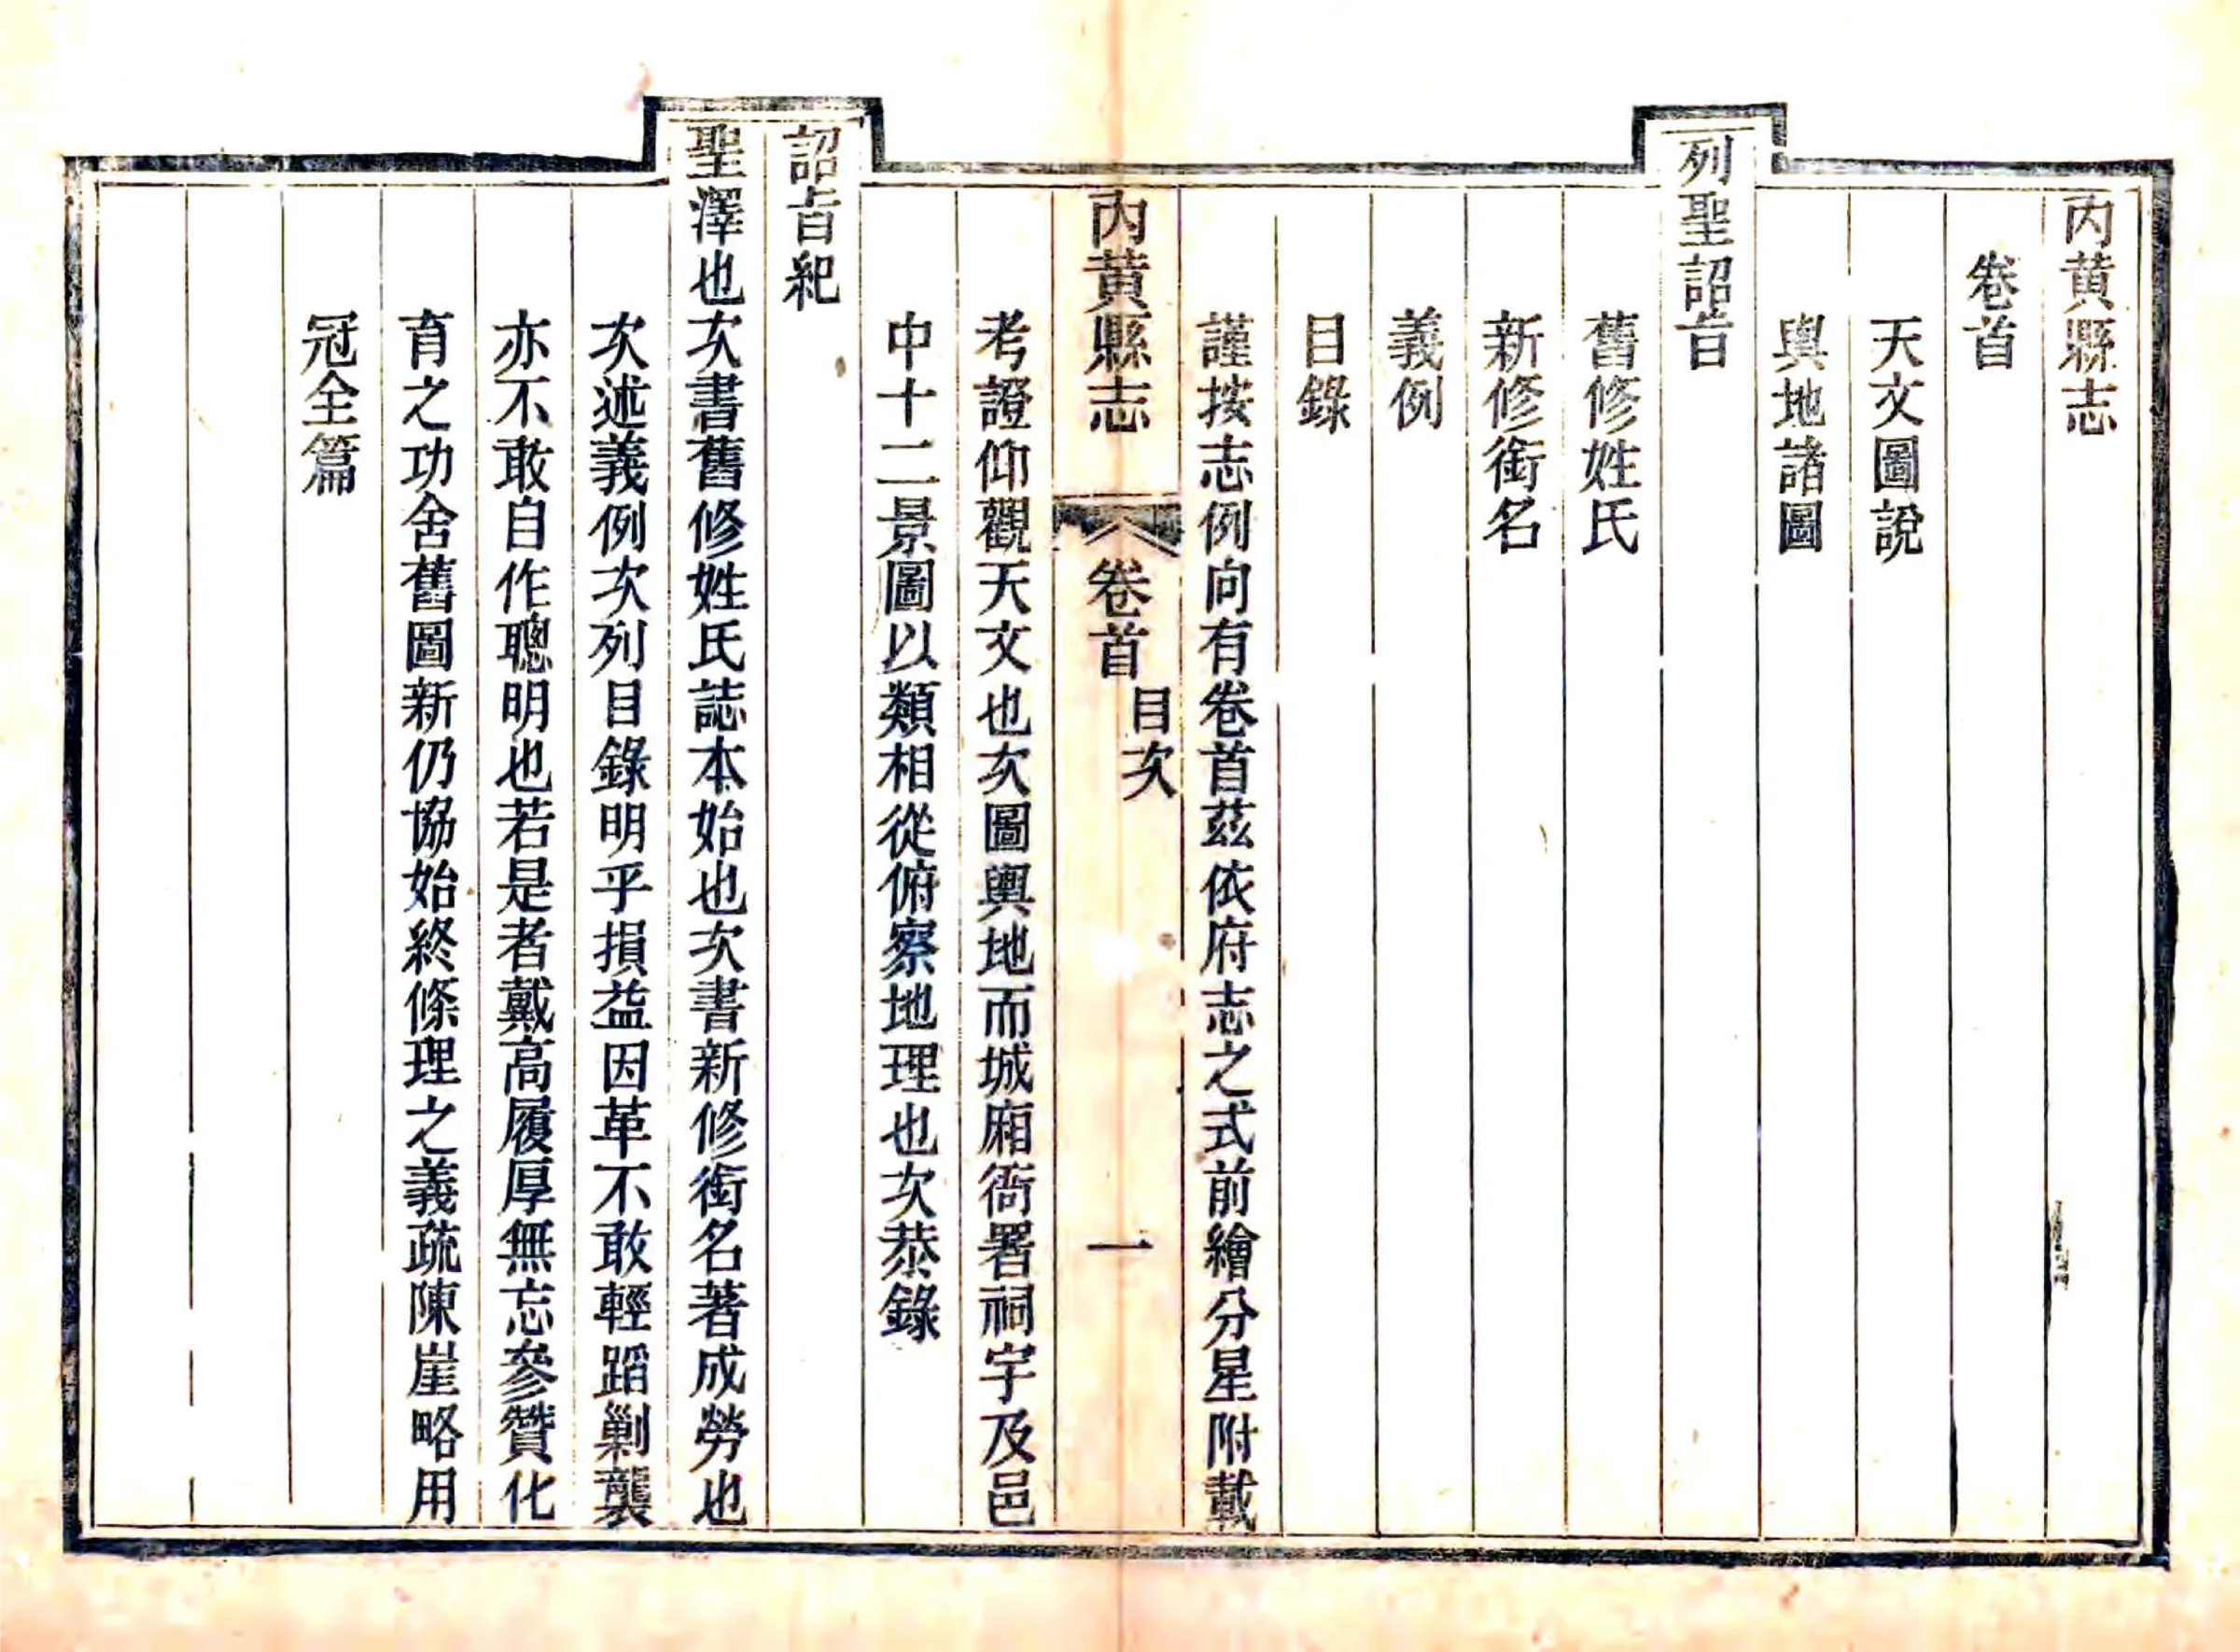 内黄縣志
卷首
天文圖說
輿地諸圖
列聖詔旨
舊修姓氏
新修銜名
義例
目錄
謹按志例向有卷首茲依府志之式前繪分星附載
內黄縣志 卷首 目次 一
考證仰觀天文也次圖輿地而城廂衙署祠宇及邑
中十二景圖以類相從俯察地理也次恭錄
詔旨紀
聖澤也次書舊修姓氏誌本始也次書新修銜名著成勞也
次述義例次列目錄明乎損益因革不敢輕蹈剿襲
亦不敢自作聰明也若是者戴高履厚無忘參贊化
育之功舍舊圖新仍協始終條理之義疏陳崖略用
冠全篇